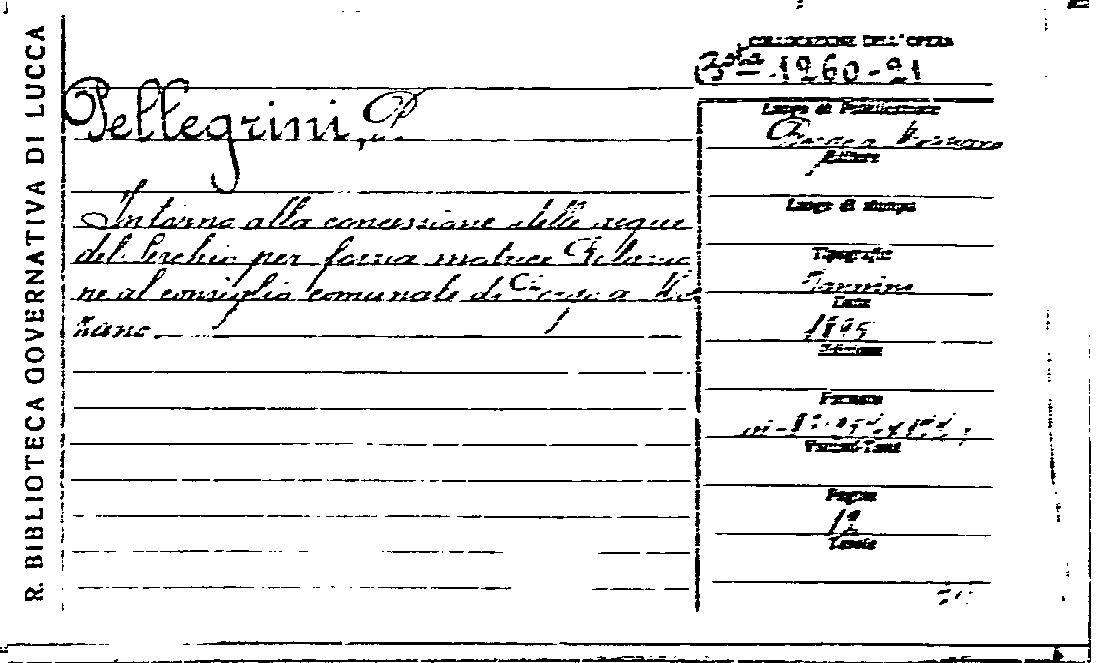 R. BIBLIOTECA GOVERNATIVA DI LUCCA
COLLOCAZIONE DELL'OPERA
Bta 1260-21
Pellegrini, P.
Intorno alla concessione delle acque
del Serchio per forza motrice Relazio
ne al consiglio comunale di Borgo a Mo
zano.
Luogo di Pubblicazione
Borgo a Mozzano
Editore
Luogo di stampa
Tipografia
Data
1895
Edizione
Formato
Volumi-Tomi
Pagine
12
Tavole